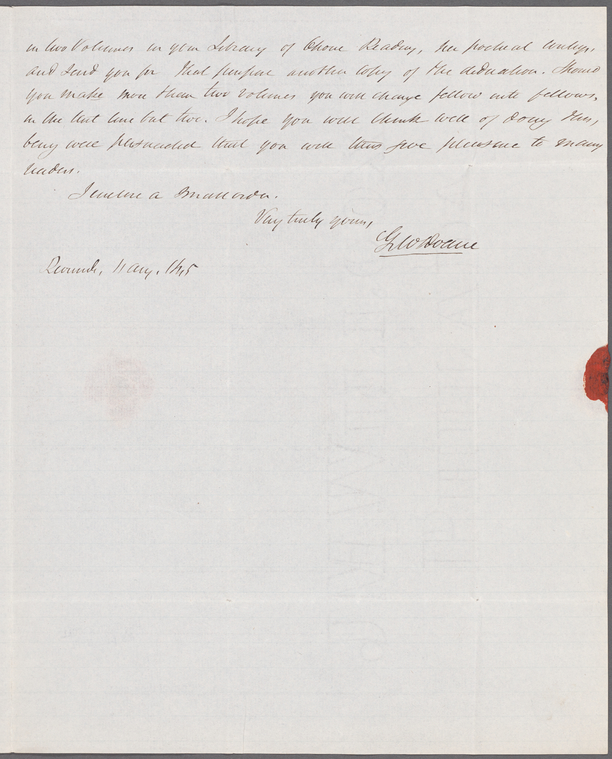 in two volumes in your Library of Choice Reading, her poetical writings,
and send you for that purpose another copy of the dedication. Should
you make more than two volumes you will change fellow into fellows,
in the last line but two. I hope you will think well of doing this,
being well persuaded that you will thus give pleasure to many
readers.
I enclose a
Very truly yours,
G W Doane
Riverside, 1845